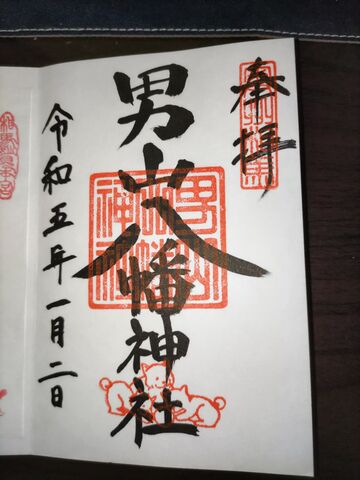 奉拝
男山八幡神社
令和五年一月二日
男山
八幡
神社